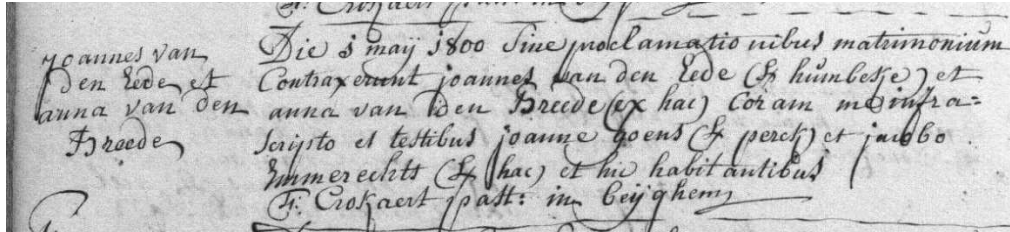 joannes van
den Eede et
anna van den
Breede
Die 5 maij 1800 sine proclamationibus matrimonium
contraxerunt joannes van den Eede (ex humbeke) et
anna van den Breede (ex hac) coram me infra=
scripto et testibus joanne goens (ex perck) et jacobo
Emmerechts (ex hac) et hic habitantibus
F: Crokaert past: in beijghem